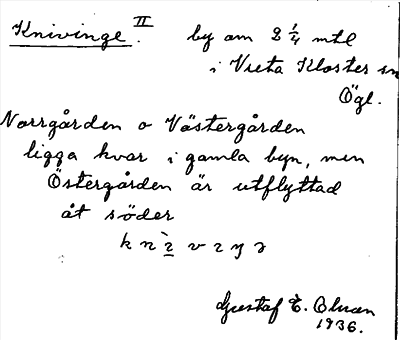 Knivinge. II by om 2 1/4 mtl
i Vreta Kloster sn
Ögl.
Norrgården o Västergården
ligga kvar i gamla byn, men
Östergården är utflyttad
åt söder
Gustaf E.
1936.